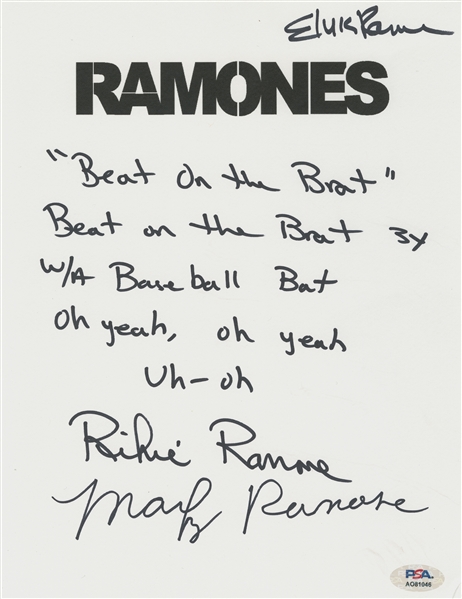 Elvis Ramone
RAMONES
"Beat On the Brat"
Beat on the Brat 3x
W/A Baseball Bat
Oh yeah, oh yeah
Uh-oh
Richie Ramone
Marky Ramone
PSA.
AO81046